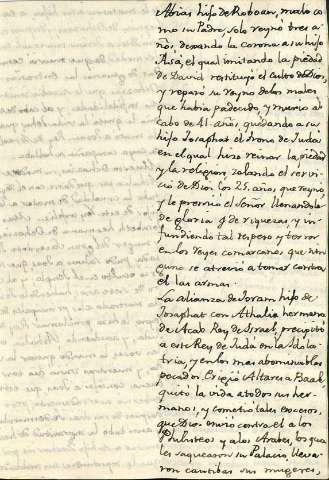 Abias hijo de Roboan, malo co
mo su Padre, solo reynó tres a
ños, dexando la corona a su hijo
Asa, el qual imitando la piedad
de David restituyó el culto de Dios,
y reparó su reyno delos males
que havia padecido, y murio al
cabo de 41 años, quedando a su
hijo Josaphat el trono de Judà
en el qual hizo reinar la piedad
y la religion, zelando el servi
cio de Dios los 25. años que reynó
y le premió el Señor llenandole
de gloria y de riquezas, y in
fundiendo tal respeto y terror
en los reyes comarcanos que nin
guno se atrevio a tomar contra
el las armas.
La alianza de Joram hijo de
Josaphat con Athalia hermana
de Acab Rey de Israel, precipitó
a este Rey de Juda en la Idola
tria, y en los mas abominables
pecados. Erigiò Altares a Baal,
quitó la vida a todos sus her
manos, y cometió tales excesos,
que Dios envió contra el a los
Philisteos y a los Arabes, los qua
les saquearon su Palacio, lleva
ron cautibas sus mugeres,